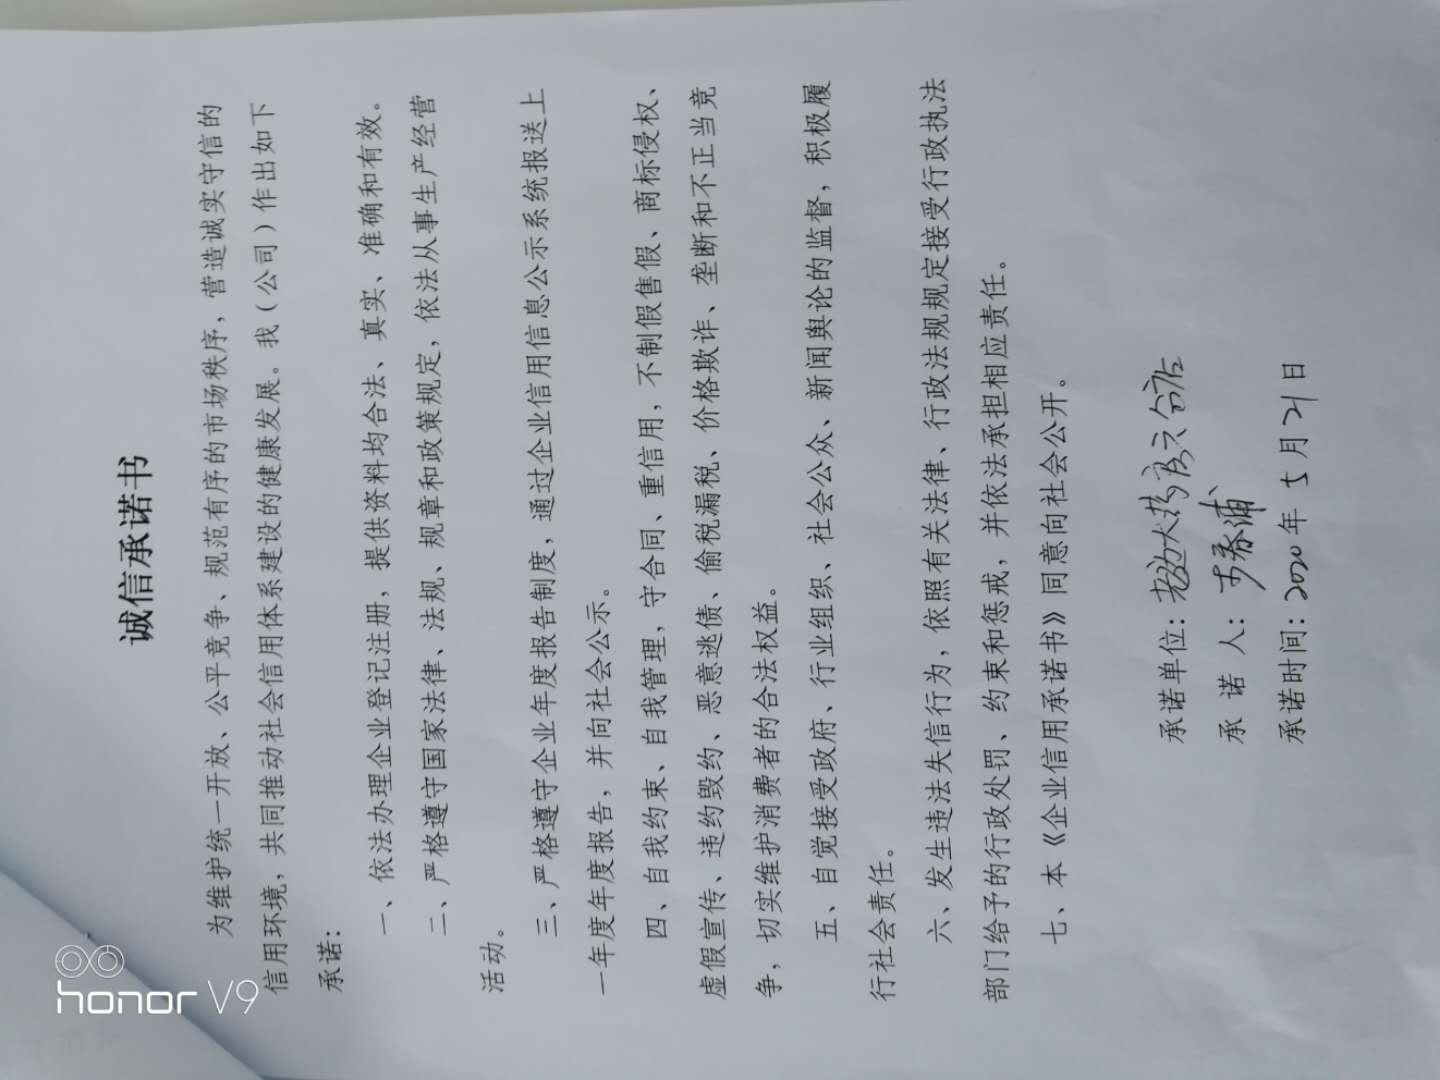 诚信承诺书
为维护统一开放、公平竞争、规范有序的市场秩序，营造诚实守信的
信用环境，共同推动社会信用体系建设的健康发展。我（公司）作出如下
承诺：
一、依法办理企业登记注册，提供资料均合法、真实、准确和有效。
二、严格遵守国家法律、法规、规章和政策规定，依法从事生产经营
活动。
三、严格遵守企业年度报告制度，通过企业信用信息公示系统报送上
一年度年度报告，并向社会公示。
四、自我约束、自我管理，守合同、重信用，不制假售假、商标侵权、
虚假宣传、违约毁约、恶意逃债、偷税漏税、价格欺诈、垄断和不正当竞
争，切实维护消费者的合法权益。
五、自觉接受政府、行业组织、社会公众、新闻舆论的监督，积极履
行社会责任。
六、发生违法失信行为，依照有关法律、行政法规规定接受行政执法
部门给予的行政处罚、约束和惩戒，并依法承担相应责任。
七、本《企业信用承诺书》同意向社会公开。
承诺单位：大药房六分店
承诺人：春浦
承诺时间：2020年5月21日
honor V9